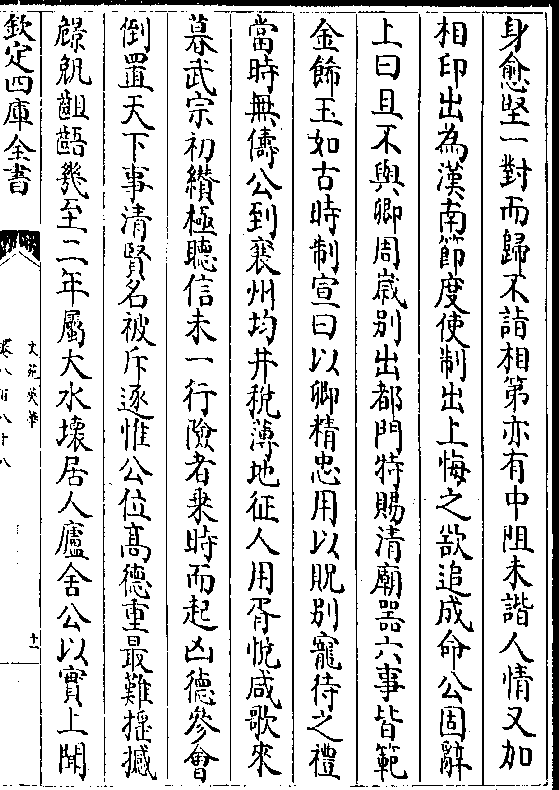 身愈堅一對而歸不詣相第亦有中阻未諧人情又加
相印出為漢南節度使制出上悔之欲追成命公固辭
上曰且不與卿周嵗别出都門特賜清廟器六事皆範
金飾玉如古時制宣曰以卿精忠用以貺别寵待之禮
當時無儔公到襄州均井税薄地征人用胥悦咸歌來
暮武宗初纘極聽信未一行險者乗時而起凶德參會
倒置天下事清賢名被斥逐惟公位髙德重最難揺撼
臲卼齟齬㡬至二年屬大水壊居人廬舍公以實上聞
欽定四庫全書
文苑英華
卷八百八十八
十一